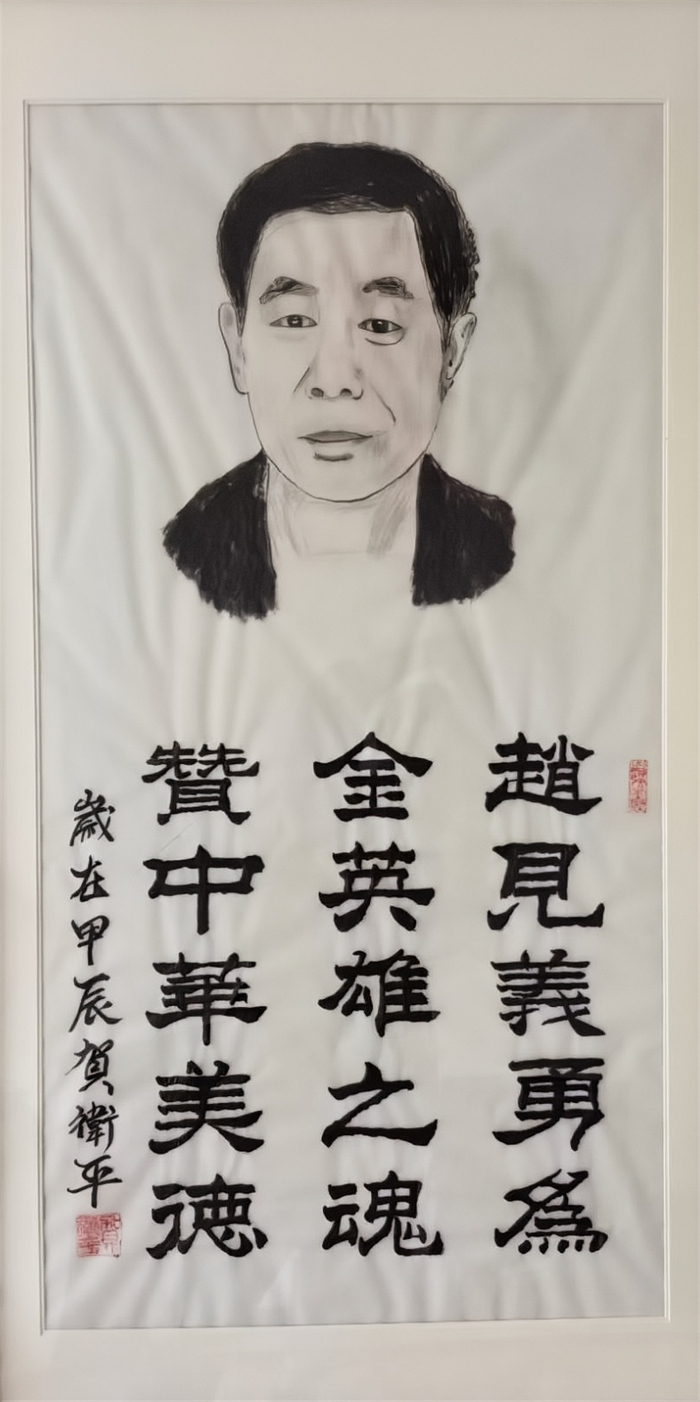 趙見義勇爲
金英雄之魂
贊中華美德
歲在甲辰賀衛平